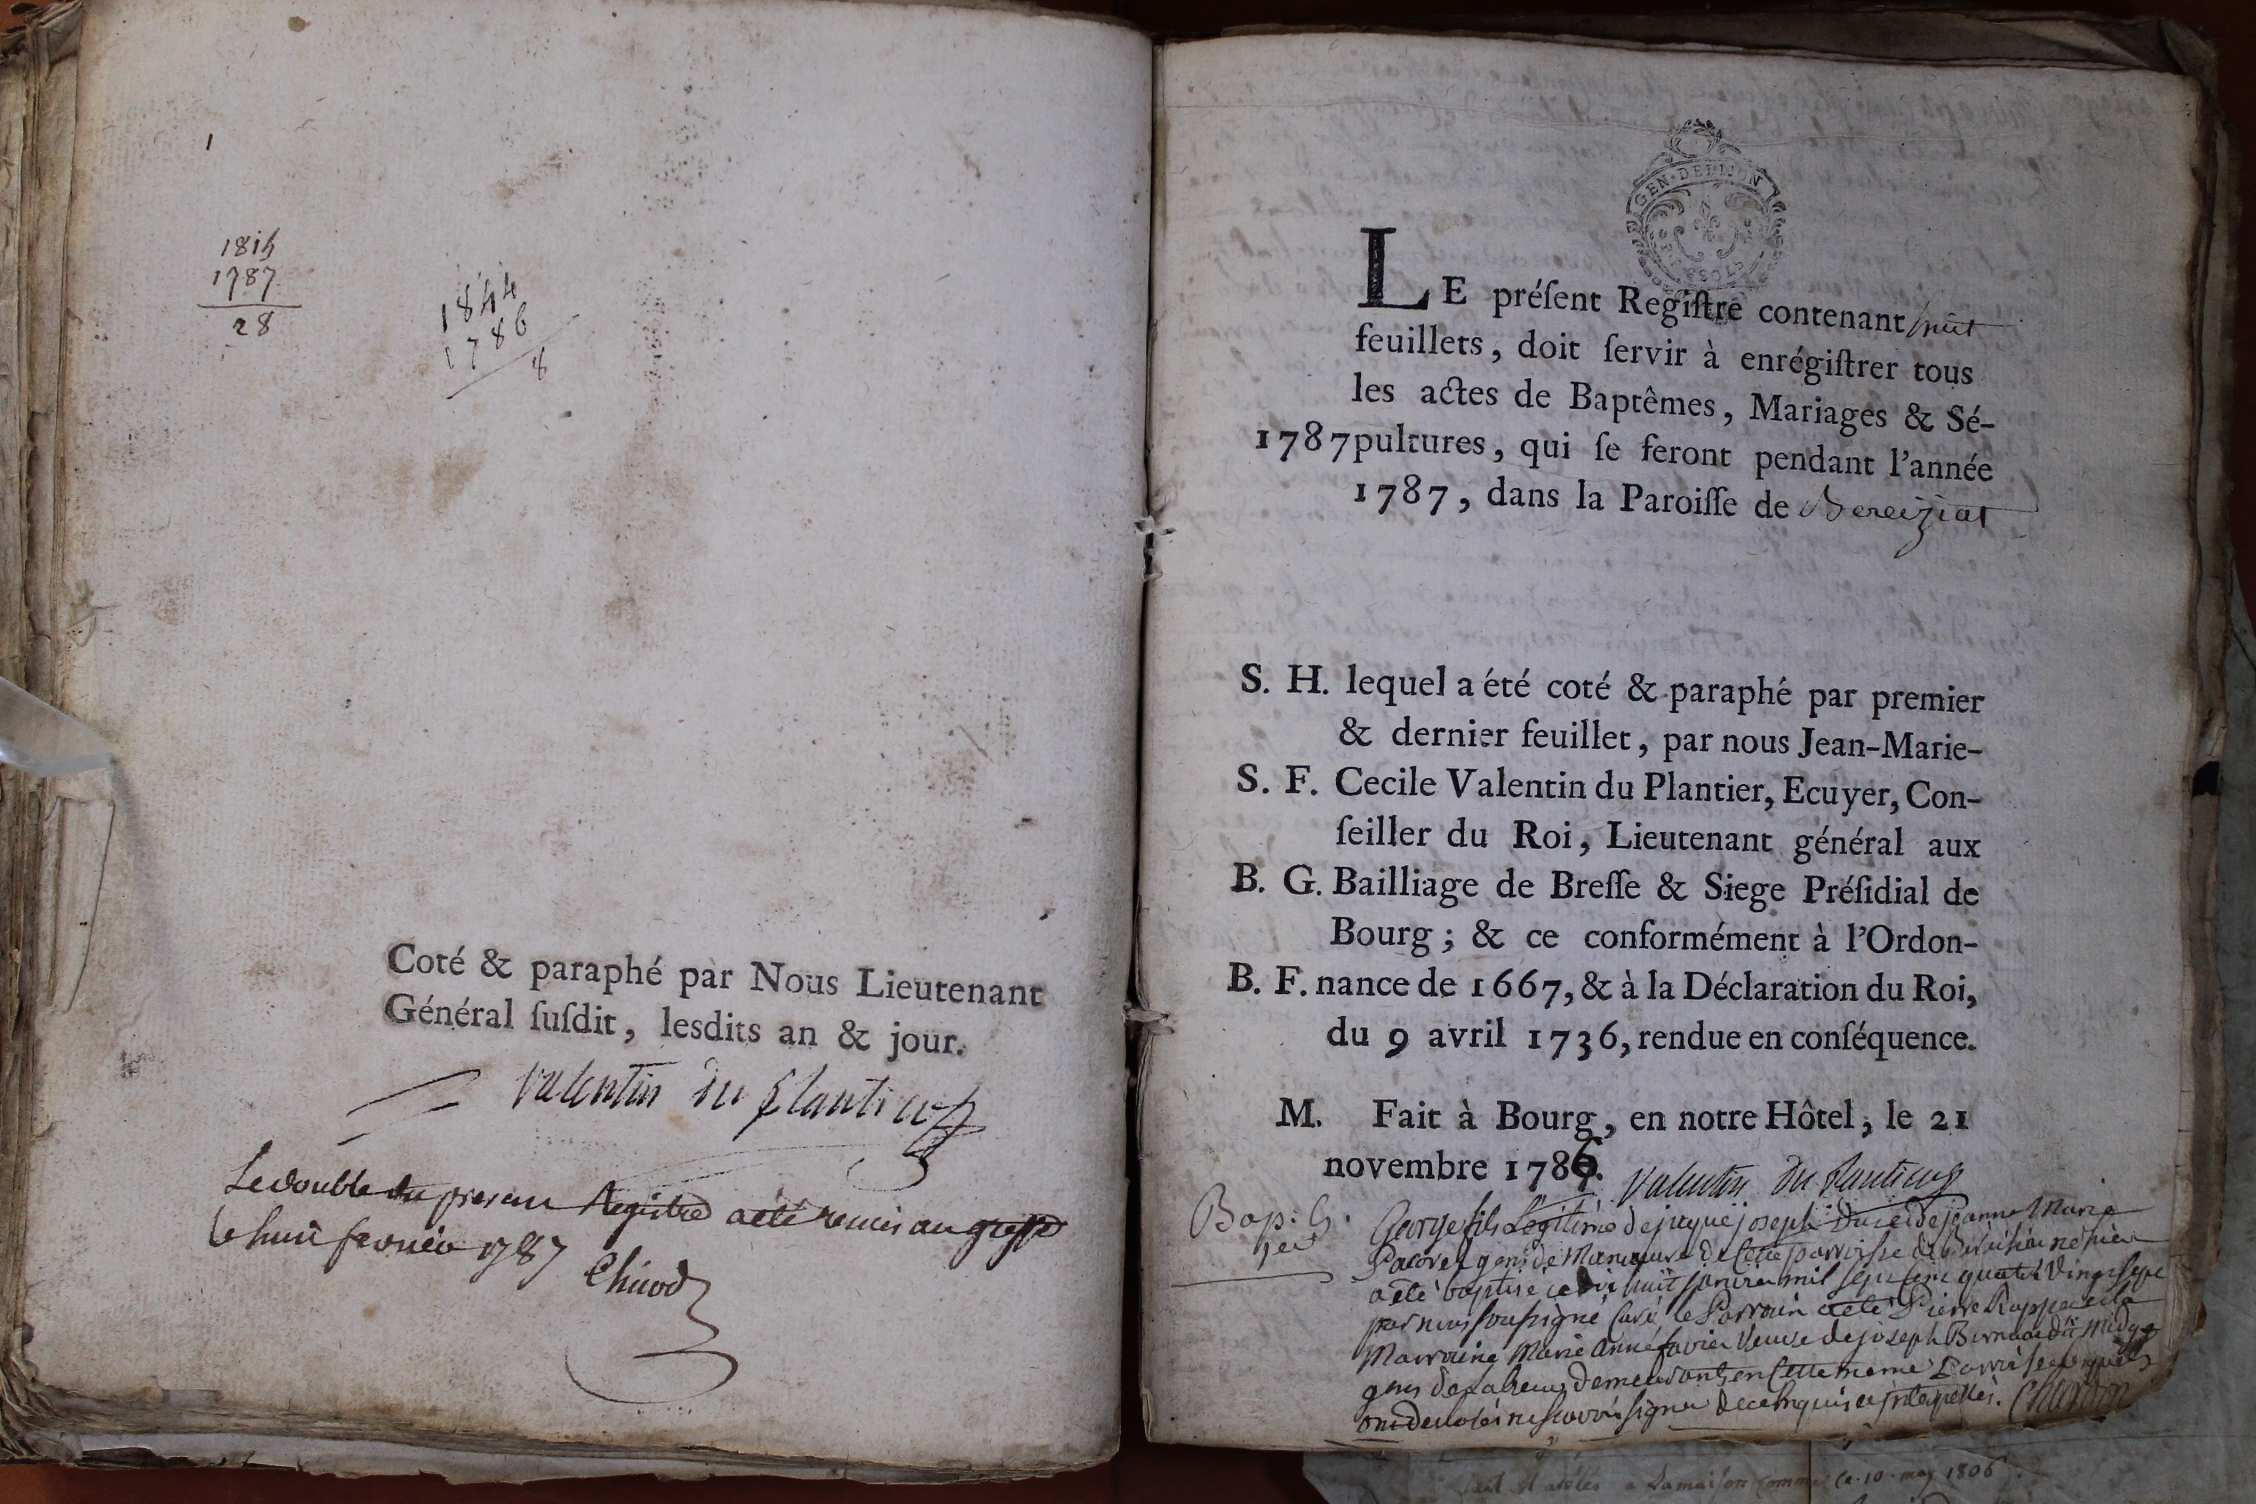 1
1815
1787
28
1844
1786
8
Coté & paraphé par Nous Lieutenant
Général ſuſdit, lesdits an & jour.
Valentin du Plantier
Le double du present Registre a été remis au greffe
le huit fevrier 1787
GEN · DE DIJON
LE préſent Regiſtre contenant huit
feuillets, doit ſervir à enrégiſtrer tous
les actes de Baptêmes, Mariages & Sé-
1787 pultures, qui ſe feront pendant l'année
1787, dans la Paroiſſe de Bereiziat
S. H. lequel a été coté & paraphé par premier
& dernier feuillet, par nous Jean-Marie-
S. F. Cecile Valentin du Plantier, Ecuyer, Con-
ſeiller du Roi, Lieutenant général aux
B. G. Bailliage de Breſſe & Siege Préſidial de
Bourg ; & ce conformément à l'Ordon-
B. F. nance de 1667, & à la Déclaration du Roi,
du 9 avril 1736, rendue en conſéquence.
M. Fait à Bourg, en notre Hôtel, le 21
novembre 1786.
Valentin du Plantier
Bap. G.
George fils Legitime de jaque joseph de jeanne Marie
gens de Manœuvre de Cette parroisse de
a été baptisé ce dix huit janvier mil sept cent quatre vingt sept
par nous soussigné Curé le Parrain a été Pierre
Marraine Marie Anne favier Veuve de joseph
demeurants en Cette meme Parroisse lesquels
ont declarés ne sçavoir signer de ce enquis et interpellés.
a la maison Commune Ce 10 may 1806